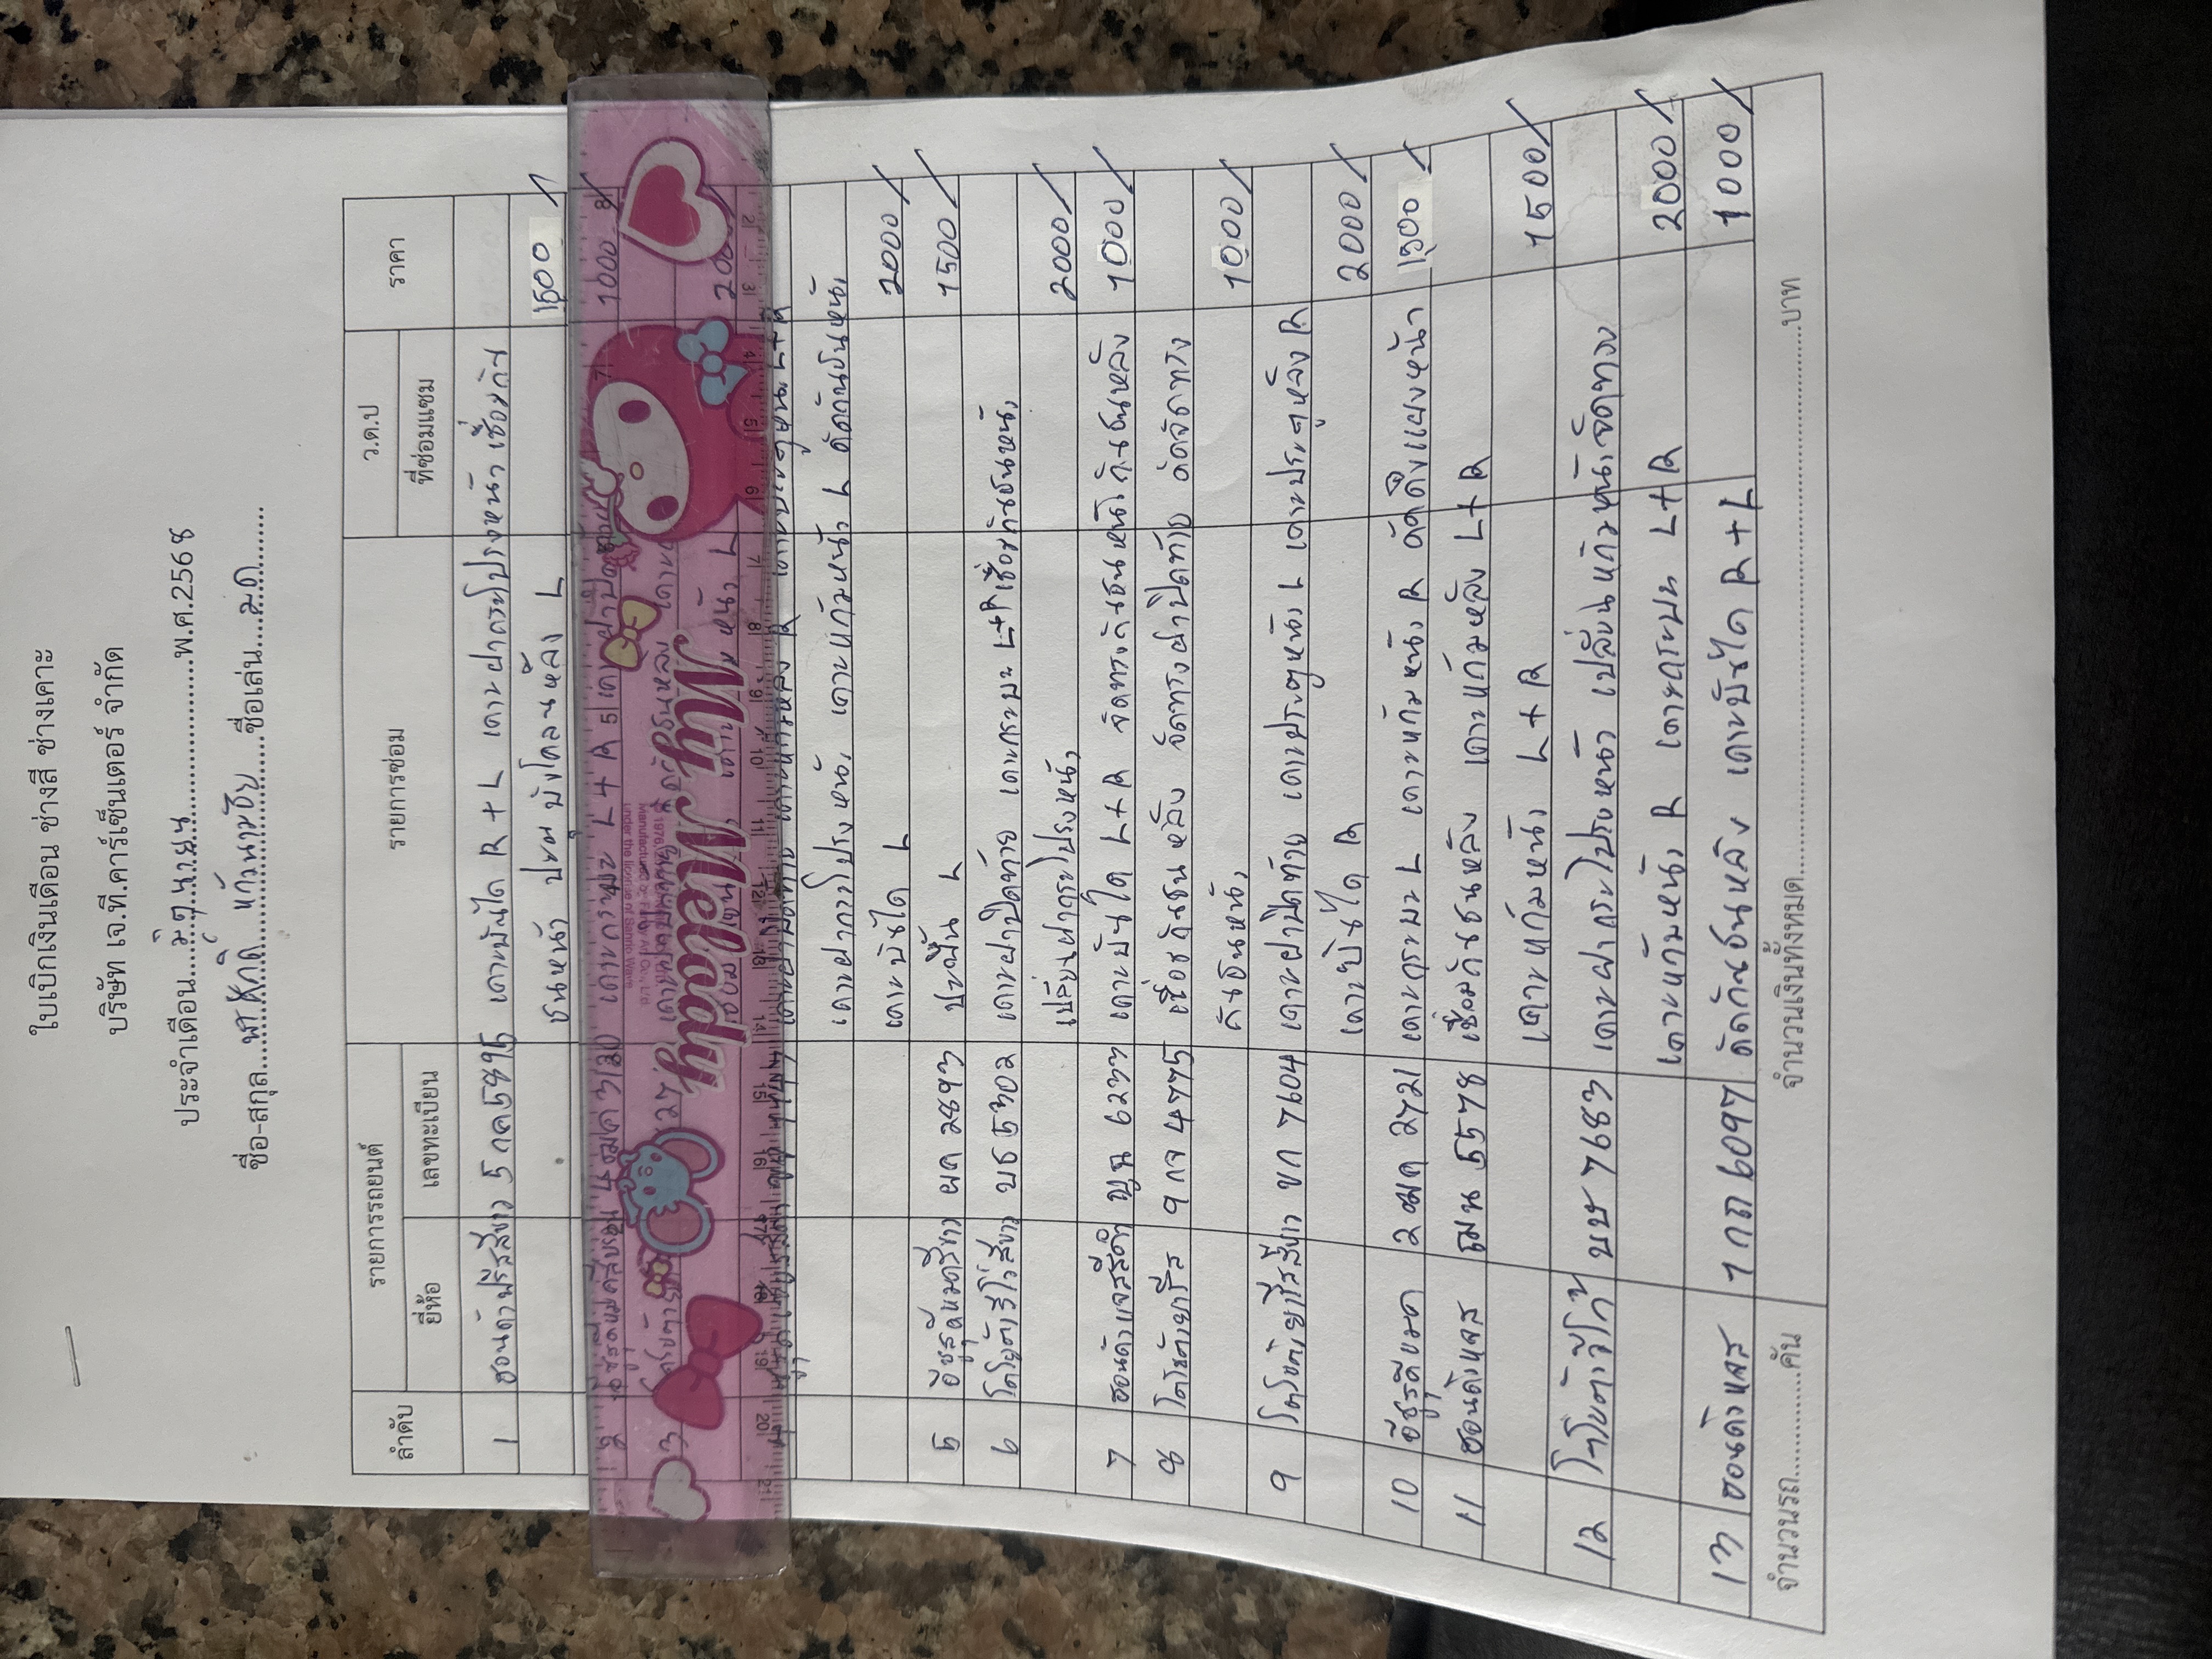 ใบเบิกเงินเดือน ช่างสี ช่างเคาะ
บริษัท เจ.ที.คาร์เซ็นเตอร์ จำกัด
ประจำเดือน....มิถุนายน....พ.ศ.2568
ชื่อ-สกุล....ชื่อเล่น....มด....
ลำดับ รายการรถยนต์ รายการซ่อม ว.ด.ป ราคา
ยี่ห้อ เลขทะเบียน ที่ซ่อมแซม
1 ฮอนด้าฟรีสสีขาว 5 กค 5895 เคาะบันได R + L เคาะฝากระโปรงหน้า เชื่อมกัน
ชนหน้า ปะผุ บังโคลนหลัง L 1500
2 1000
3 2000
My Melody
เคาะฝากระโปรงหน้า เคาะแก้มหน้า L ดัดกันชนหน้า
เคาะบันได L 2000
5 อีซูซุดีแมคสีขาว ผค 2893 ปะพื้น L 1500
6 โตโยต้ารีโว่สีขาว บธ 5302 เคาะฝาปิดท้าย เคาะกระบะ L+R เชื่อมกันชนหน้า
เปลี่ยนฝากระโปรงหน้า 2000
7 ฮอนด้าแจสสีดำ 6233 เคาะบันได L+R จัดทรงกันชนหน้า กันชนหลัง 1000
8 โตโยต้ายารีส 9 กจ 4775 เชื่อมกันชนหลัง จัดทรงฝาปิดท้าย ดัดจัดทรง
กันชนหน้า 1000
9 โตโยต้ายารีสสีขาว ขก 7604 เคาะฝาปิดท้าย เคาะประตูหน้า L เคาะประตูหลัง R
เคาะบันได R 2000
10 อีซูซุดีแมค 2 ฒค 2721 เคาะกระบะ L เคาะแก้มหน้า R ดัดดึงแผงหน้า 1500
11 ฮอนด้าแจส ฌน 5578 เชื่อมกันชนหลัง เคาะแก้มหลัง L+R
เคาะแก้มหน้า L+R 1500
12 โตโยต้าวีโก้ บษ 7683 เคาะฝากระโปรงหน้า เปลี่ยนแก้มหน้าจัดทรง
เคาะแก้มหน้า R เคาะกระบะ L+R 2000
13 ฮอนด้าแจส 7 กถ 6097 ดัดกันชนหลัง เคาะบันได R + L 1000
จำนวนรถ............คัน จำนวนเงินทั้งหมด............บาท